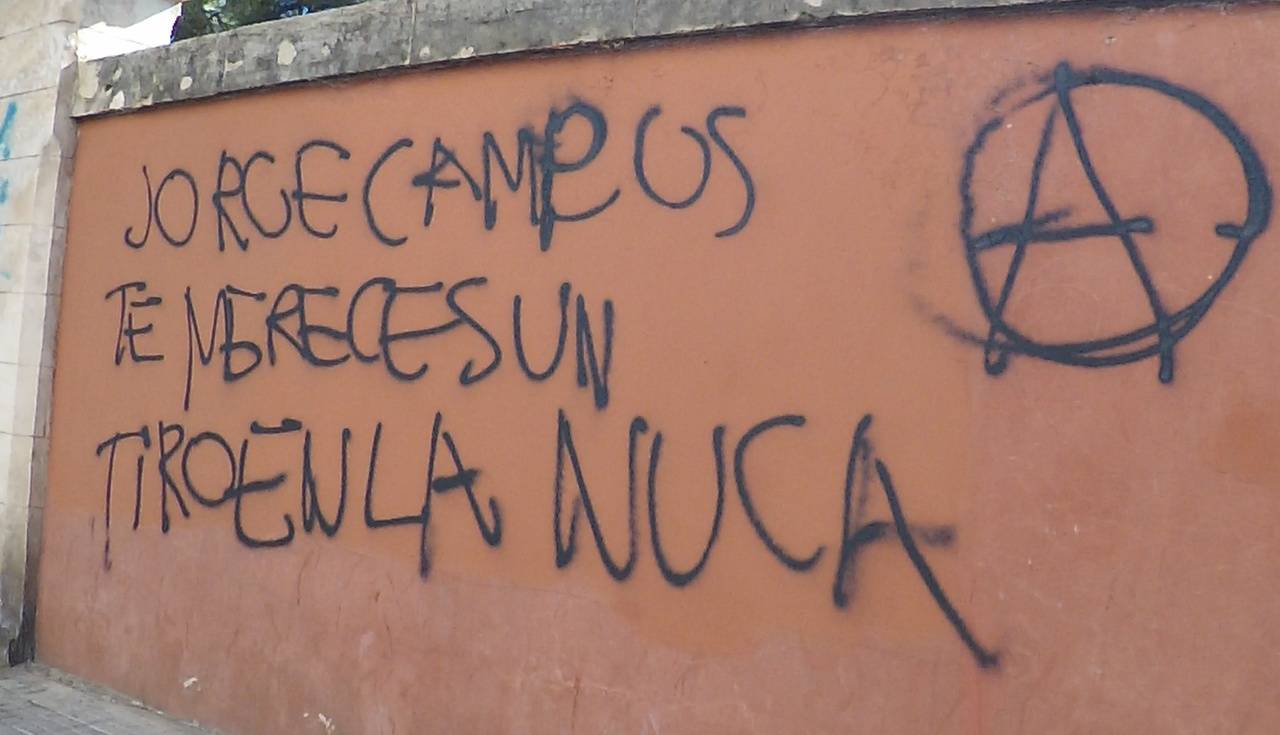 JORGE CAMPOS
TE MERECES UN
TIRO EN LA NUCA
A